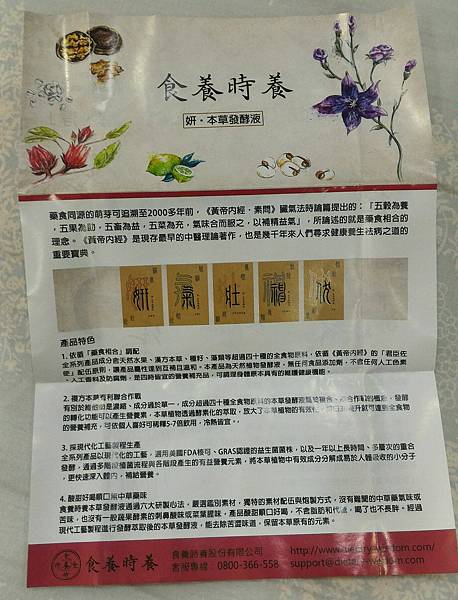 食養時養
妍・本草發酵液
藥食同源的萌芽可追溯至2000多年前,《黃帝內經・素問》臟氣法時論篇提出的:「五穀為養
,五果為助,五畜為益,五菜為充,氣味合而服之,以補精益氣」,所論述的就是藥食相合的
理念。《黃帝內經》是現存最早的中醫理論著作,也是幾千年來人們尋求健康養生祛病之道的
重要寶典。
妍
氣
壯
產品特色
1. 依循「藥食相合」調配
全系列產品成分含天然水果、漢方本草、種籽、藻類等超過四十種的全食物原料,依循《黃帝內經》的「君臣佐
使」配伍原則,讓產品屬性達到互補且溫和。本產品為天然植物發酵液,無任何食品添加劑,不含任何人工色素
、人工香料及防腐劑,是四時皆宜的營養補充品,可調理身體原本具有的機構健康機能。
2. 複方本草有利聯合作戰
的轉化功能可以產生數
的營養補充,可依個人喜好可稀釋5-7倍飲用,冷熱皆宜。
3. 採現代化工藝製程生產
全系列產品以現代化的工藝,選用美國FDA核可、GRAS認證的益生菌菌株,以及一年以上長時間、多層次的重合
發酵,透過多階段植菌流程與各階段產生的有益營養元素,將本草植物中有效成分分解成易於人體吸收的小分子
,更快速深入體內,補給營養。
4. 酸甜好喝順口無中草藥味
食養時養本草發酵液透過六大研製心法,嚴選鑑別素材,獨特的素材配伍與炮製方式,沒有難聞的中草藥氣味或
苦味,也沒有一般蔬果酵素的刺鼻酸味或菜葉腥味,產品酸甜順口好喝,不含脂肪和代糖,喝了也不長胖。經過
現代工藝製程進行發酵萃取後的本草發酵液,能去除苦澀味道,保留本草原有的元素。
食養時養
食養時養股份有限公司
客服專線 0800-366-558